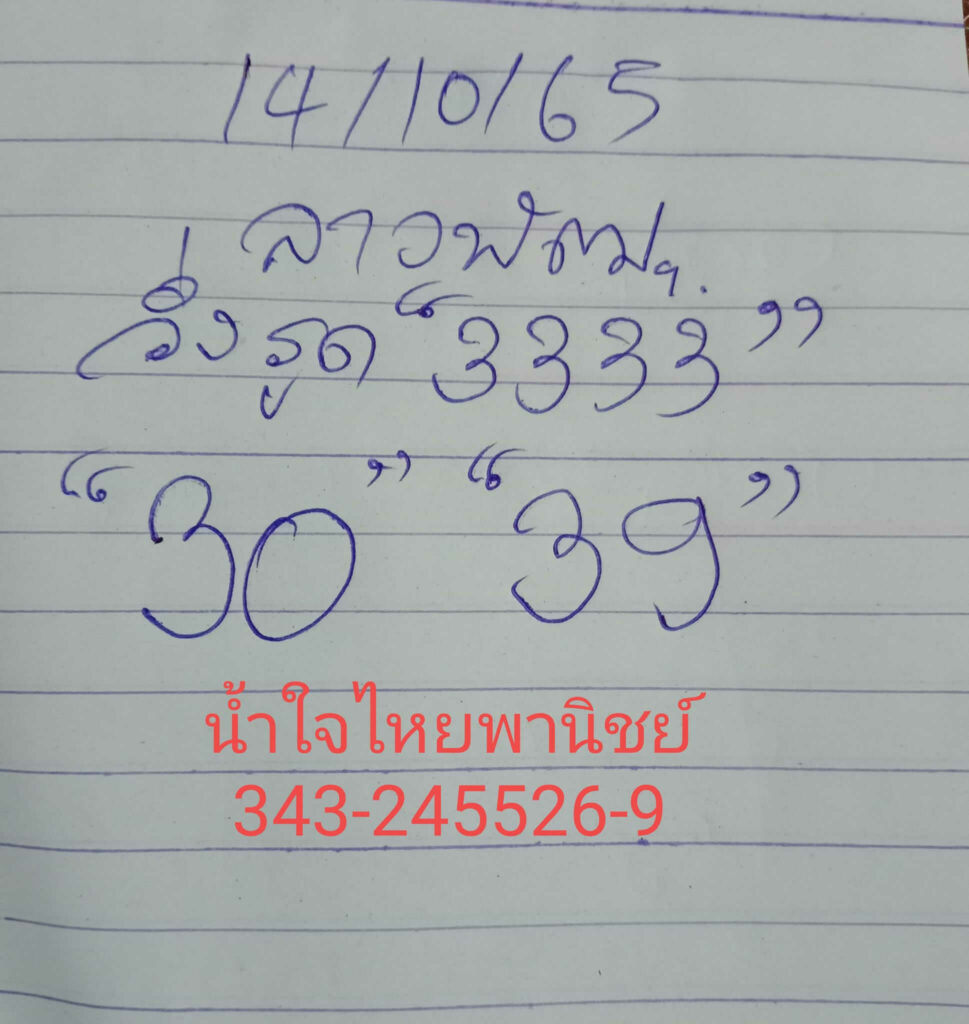 14/10/65
ลาวพัฒฯ.
วิ่งรูด "3333"
"30" "39"
น้ำใจไหยพานิชย์
343-245526-9